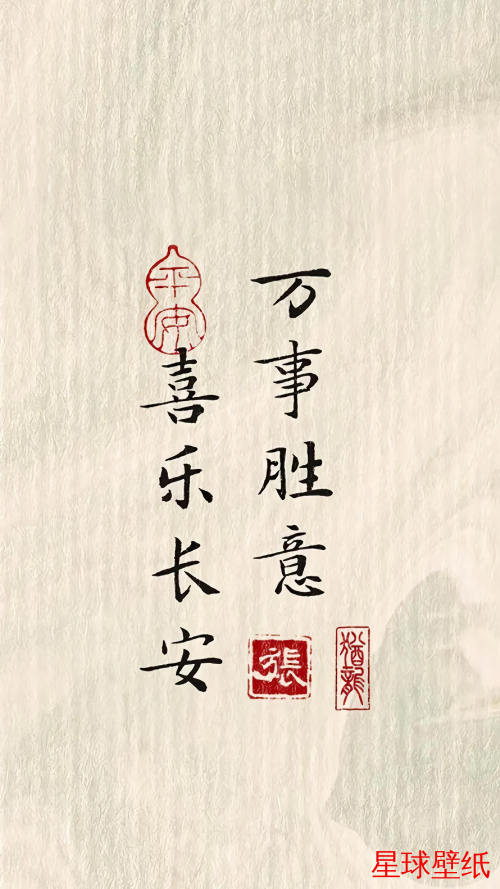 万事胜意
喜乐长安
平安
張
猶龍
星球壁纸